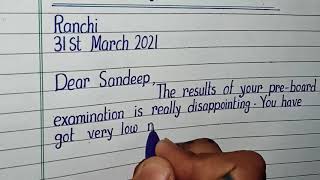 Ranchi
31st March 2021
Dear Sandeep,
The results of your pre-board
examination is really disappointing. You have
got very low